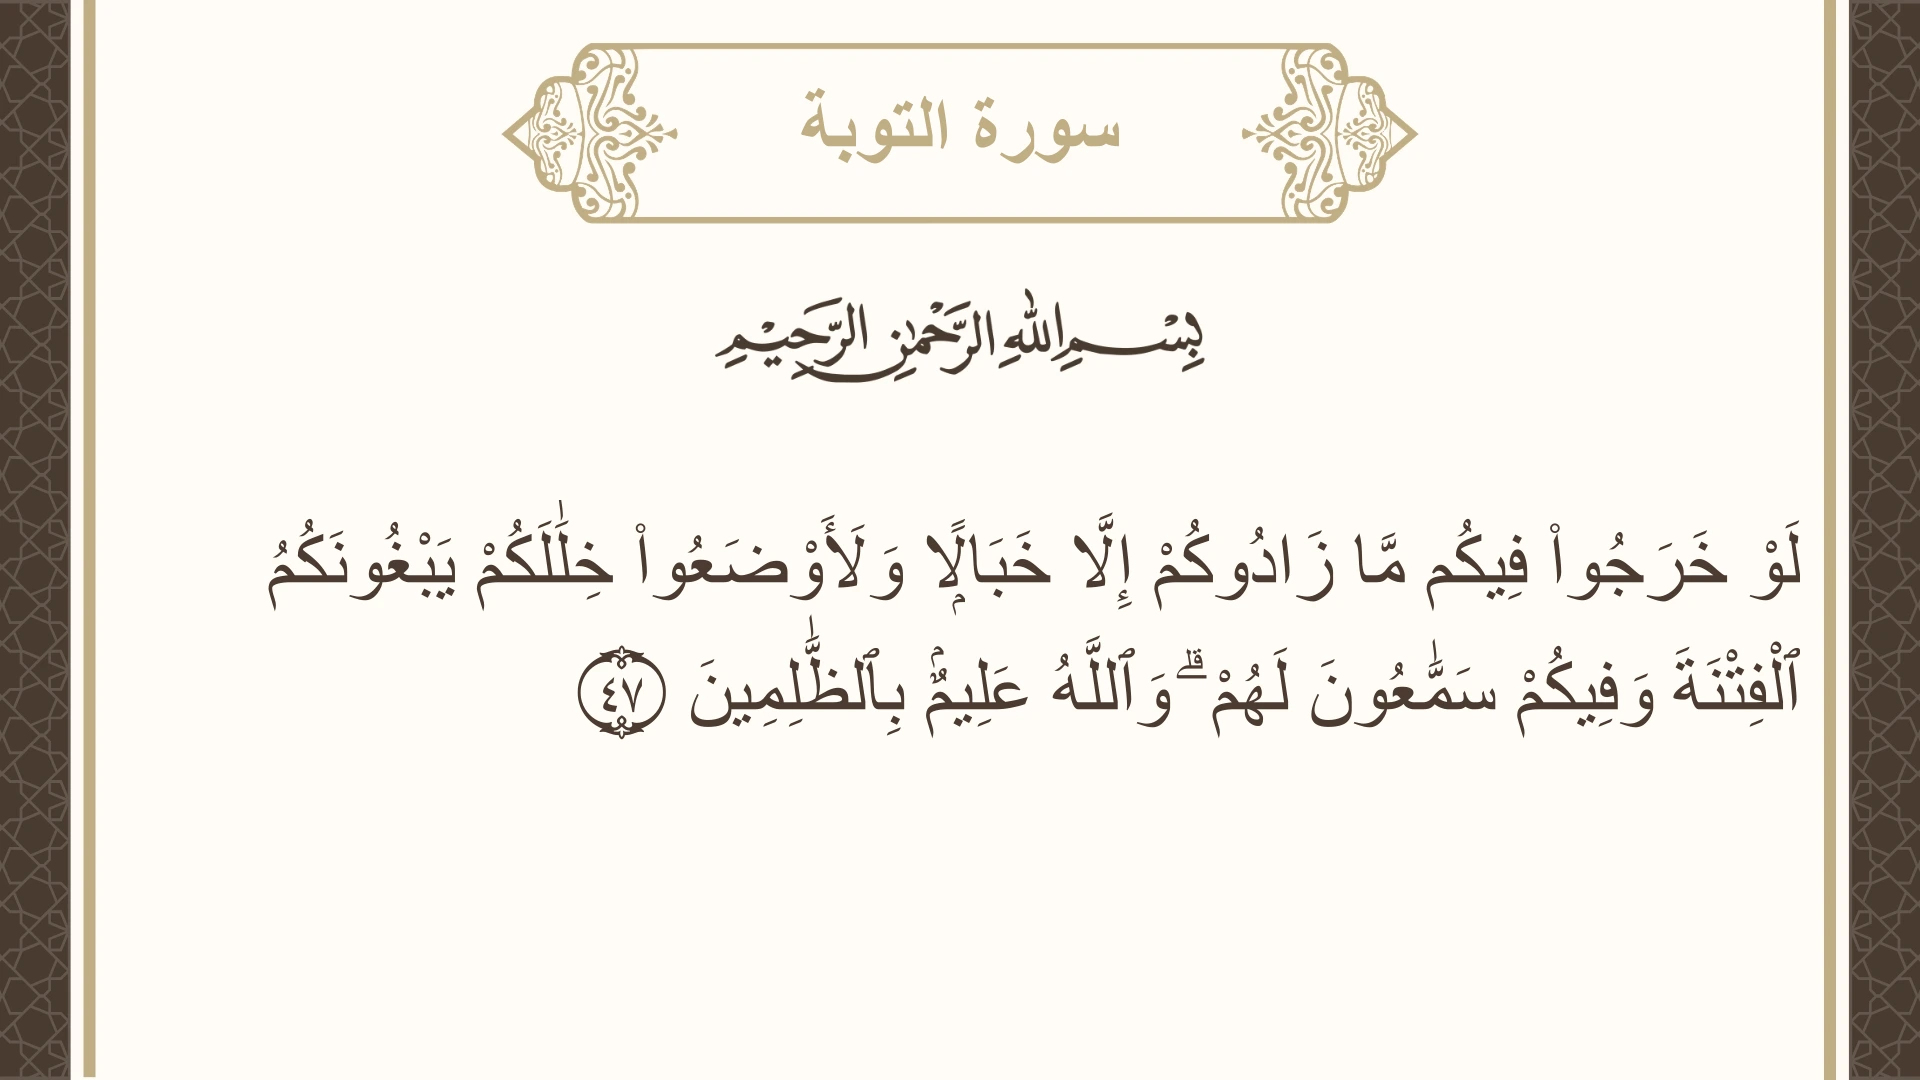 سورة التوبة
بِسْمِ اللهِ الرَّحْمٰنِ الرَّحِيْمِ
لَوْ خَرَجُوا۟ فِيكُم مَّا زَادُوكُمْ إِلَّا خَبَالًۭا وَلَأَوْضَعُوا۟ خِلَـٰلَكُمْ يَبْغُونَكُمُ
ٱلْفِتْنَةَ وَفِيكُمْ سَمَّـٰعُونَ لَهُمْ ۗ وَٱللَّهُ عَلِيمٌۢ بِٱلظَّـٰلِمِينَ ٤٧